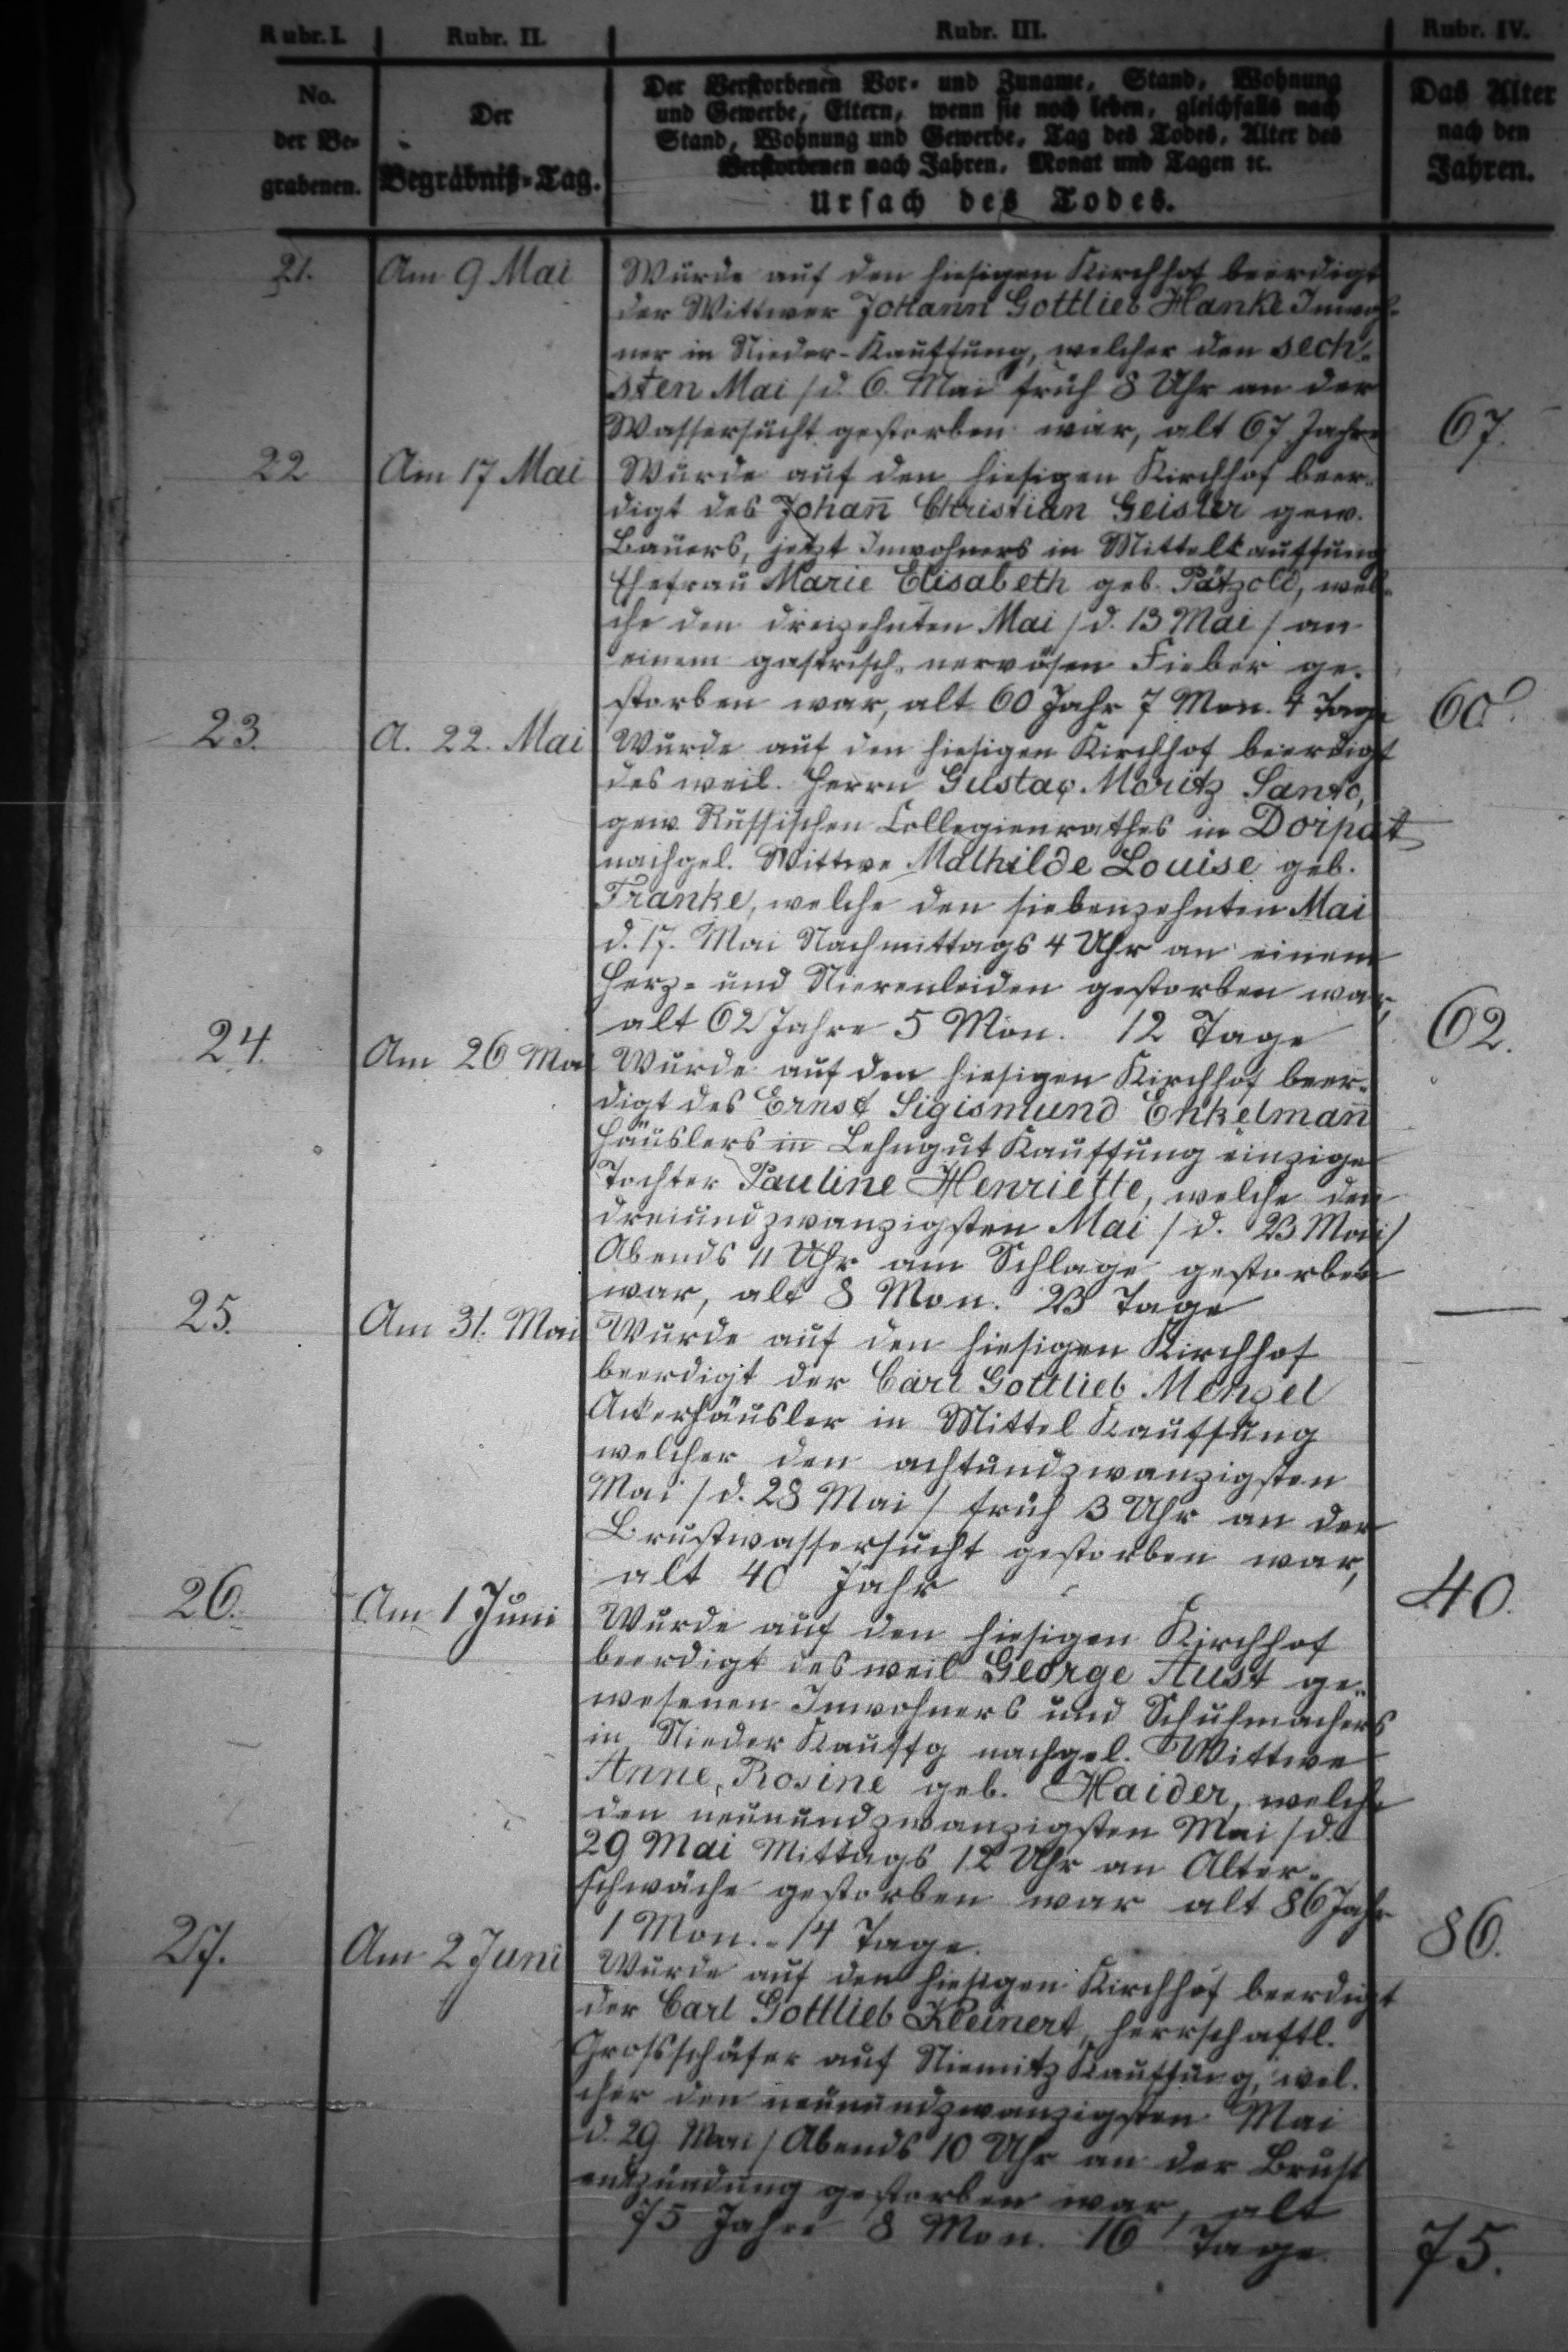 Rubr. I. Rubr. II. Rubr. III. Rubr. IV.
No.
der Be-
grabenen.
Der
Begräbniß-Tag.
Der Verstorbenen Vor- und Zuname, Stand, Wohnung
und Gewerbe, Eltern, wenn sie noch leben, gleichfalls nach
Stand, Wohnung und Gewerbe, Tag des Todes, Alter des
Verstorbenen nach Jahren, Monat und Tagen ꝛc.
Ursach des Todes.
Das Alter
nach den
Jahren.
21. Am 9 Mai Wurde auf den hiesigen Kirchhof beerdigt
der Wittwer Johann Gottlieb Hanke Inwoh-
ner in Nieder-Kauffung, welcher den sech-
sten Mai /d. 6. Mai früh 8 Uhr an der
Wassersucht gestorben war, alt 67 Jahre 67.
22 Am 17 Mai Wurde auf den hiesigen Kirchhof beer-
digt des Johan̄ Christian Geisler gew.
Bauers, jetzt Inwohners in Mittelkauffung
Ehefrau Marie Elisabeth geb. Pätzold, wel-
che den dreizehnten Mai /d. 13 Mai/ an
einem gastrisch-nervösen Fieber ge-
storben war, alt 60 Jahr 7 Mon. 4 Tage 60.
23. A. 22. Mai Wurde auf den hiesigen Kirchhof beerdigt
des weil. Herrn Gustav Moritz Santo,
gew. Russischen Collegienrathes in Dorpat
nachgel. Wittwe Mathilde Louise geb.
Franke, welche den siebenzehnten Mai
d. 17. Mai Nachmittags 4 Uhr an einem
Herz- und Nierenleiden gestorben war,
alt 62 Jahre 5 Mon. 12 Tage 62.
24. Am 26 Mai Wurde auf den hiesigen Kirchhof beer-
digt des Ernst Sigismund Enkelman̄
Häuslers in Lehngut Kauffung einzige
Tochter Pauline Henriette, welche den
dreiundzwanzigsten Mai /d. 23 Mai/
Abends 11 Uhr am Schlage gestorben
war, alt 8 Mon. 23 Tage —
25. Am 31. Mai Wurde auf den hiesigen Kirchhof
beerdigt der Carl Gottlieb Menzel
Ackerhäusler in Mittel Kauffung
welcher den achtundzwanzigsten
Mai /d. 28 Mai/ früh 3 Uhr an der
Brustwassersucht gestorben war,
alt 40 Jahr 40.
26. Am 1 Juni Wurde auf den hiesigen Kirchhof
beerdigt des weil George Aust ge-
wesenen Inwohners und Schuhmachers
in Nieder Kauffg nachgel. Wittwe
Anne Rosine geb. Haider, welche
den neunundzwanzigsten Mai /d.
29 Mai Mittags 12 Uhr an Alter-
schwäche gestorben war alt 86 Jahr
1 Mon. 14 Tage. 86.
27. Am 2 Juni Wurde auf den hiesigen Kirchhof beerdigt
der Carl Gottlieb Kleinert, herrschaftl.
Grossschäfer auf Niemitz Kauffung, wel-
cher den neunundzwanzigsten Mai
d. 29 Mai/ Abends 10 Uhr an der Brust
entzündung gestorben war, alt
75 Jahre 8 Mon. 16 Tage. 75.